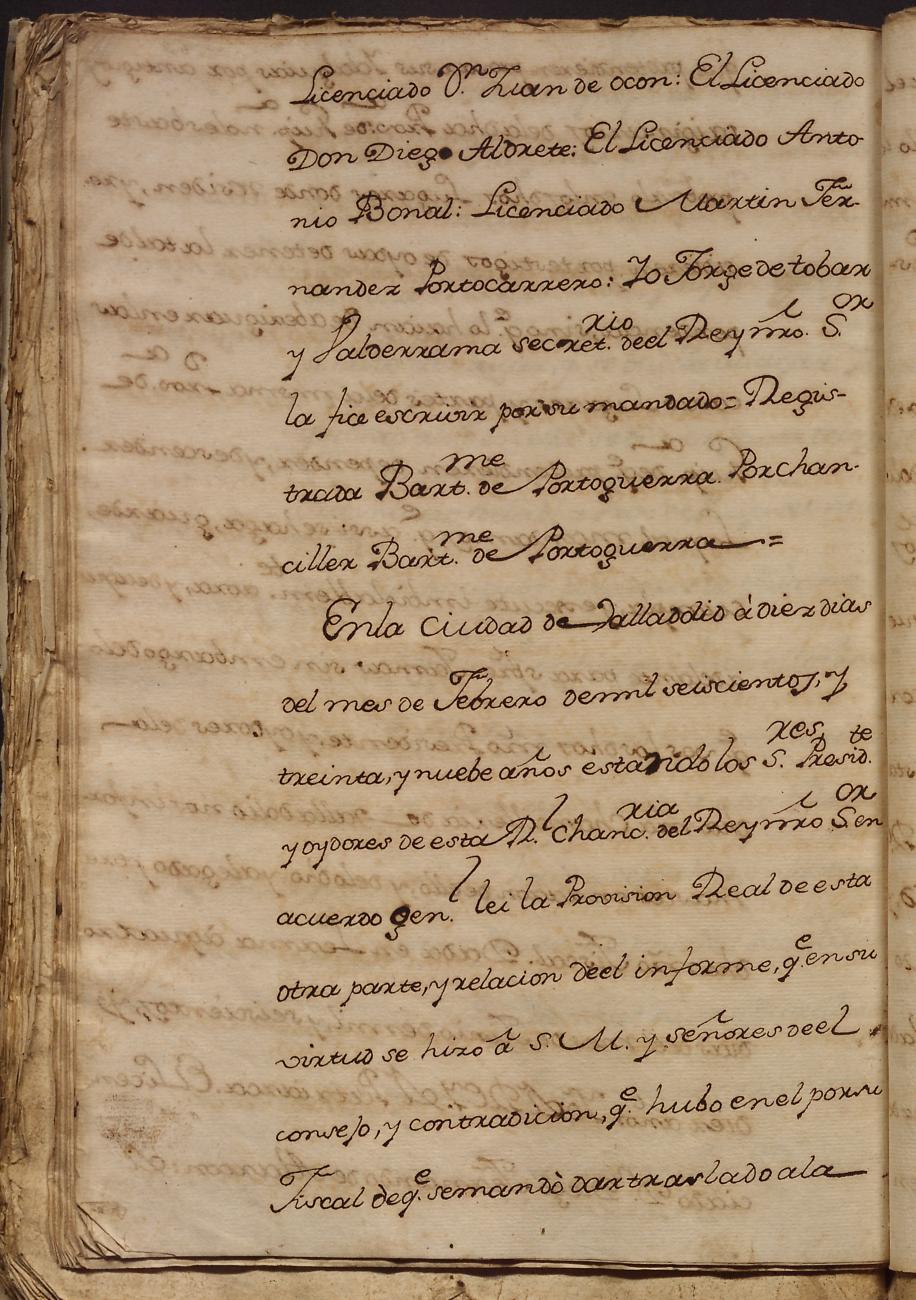 Licenciado D.n Juan de ocon: El Licenciado
Don Diego Aldrete: El Licenciado Anto-
nio Bonal: Licenciado Martin Fer̃-
nandez Portocarrero: Yo Jorge de tobar
y Valderrama secret.rio deel Rey nr̃o. S.or
la fice escrivir por su mandado= Regis-
trada Bart.me de Portoguerra. Por chan-
ciller Bart.me de Portoguerra=
En la Ciudad de Valladolid à diez dias
del mes de Febrero de mil seiscientos, y
treinta, y nuebe años estando los S.res Presid.te
y oydores de esta R.l Chanc.ria del Rey nr̃o S.or en
acuerdo gen.l lei la Provision Real de esta
otra parte, y relacion deel informe, q.e en su
virtud se hizo à S. M. y señores de el
consejo, y contradicion, q.e hubo en el por su
Fiscal de q.e se mandò dar traslado a la